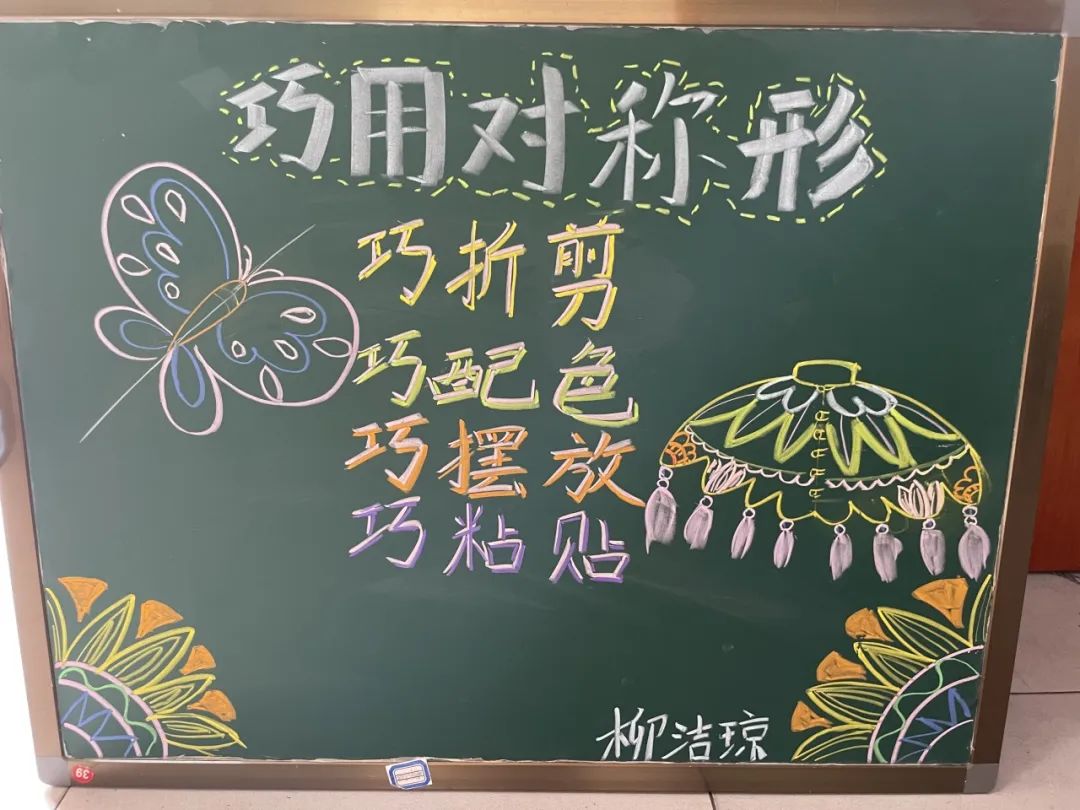 巧用对称形
巧折剪
巧配色
巧摆放
巧粘贴
柳洁琼
39